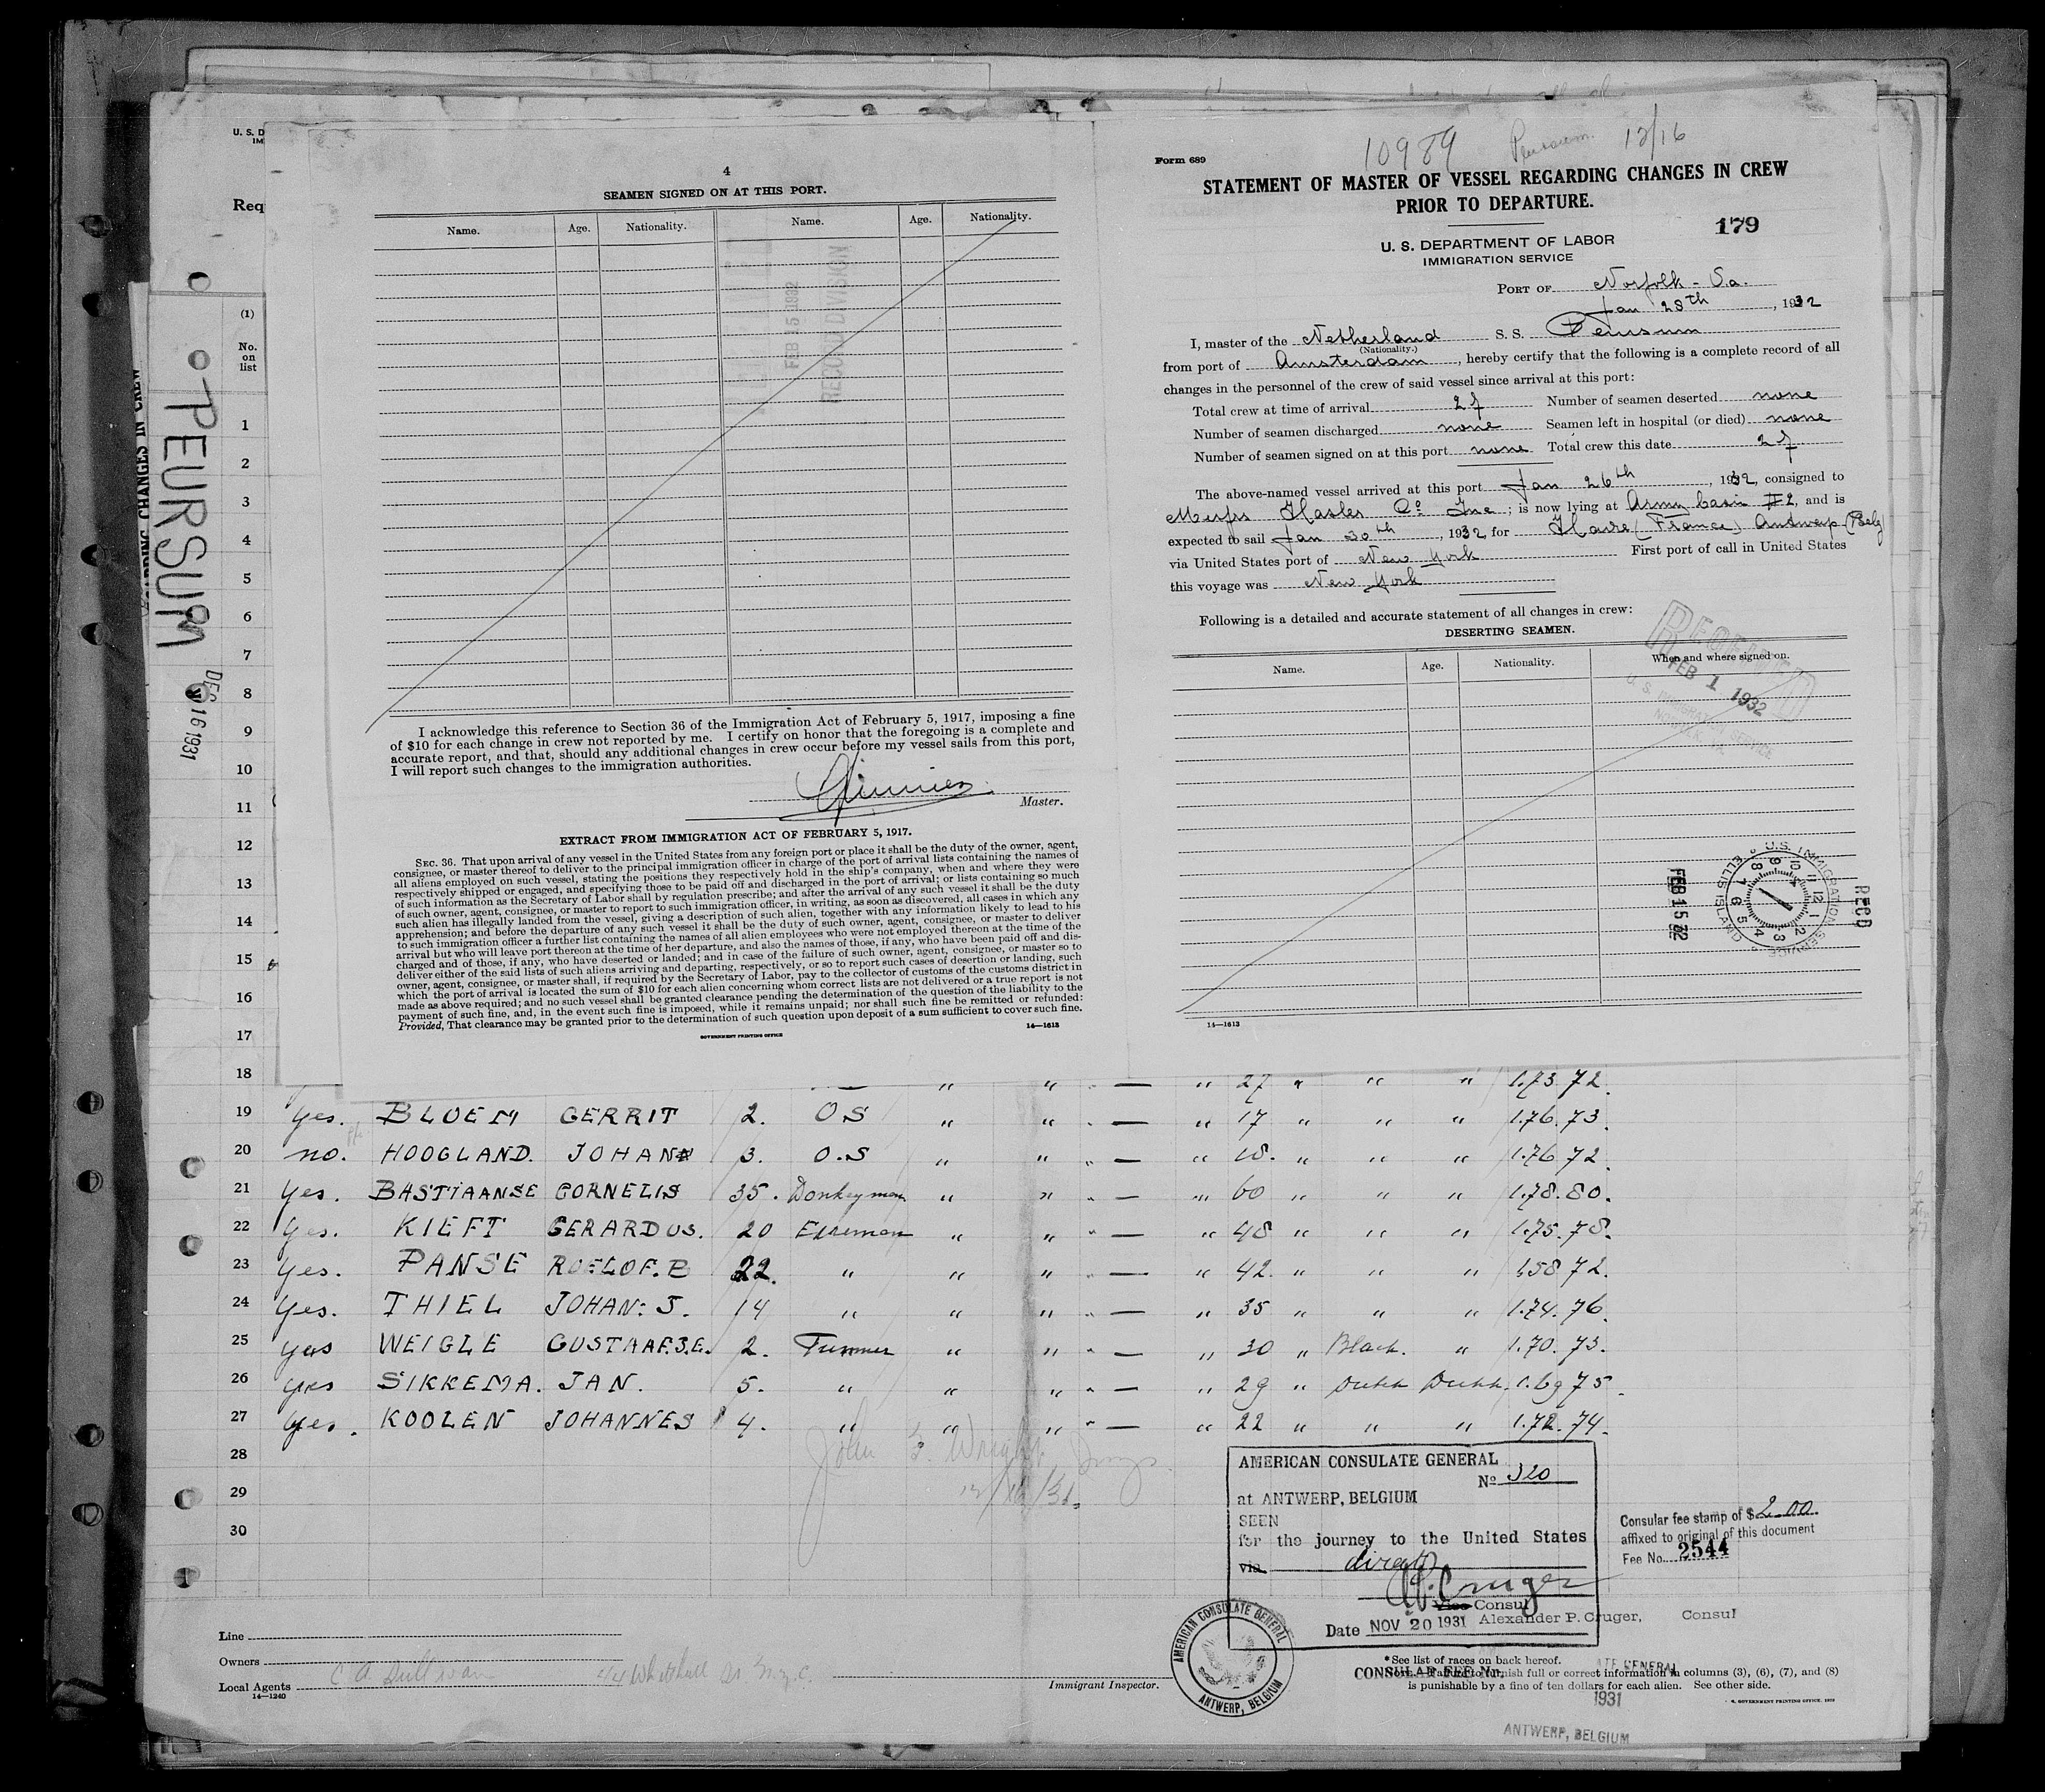 U. S. D
IM
Req
(1)
No.
on
list
CHANGES IN CREW
PEURSUM
DEC 16 1931
4
SEAMEN SIGNED ON AT THIS PORT.
Name. Age. Nationality. Name. Age. Nationality.
FEB 15 1932
RECORD DIVISION
I acknowledge this reference to Section 36 of the Immigration Act of February 5, 1917, imposing a fine
of $10 for each change in crew not reported by me. I certify on honor that the foregoing is a complete and
accurate report, and that, should any additional changes in crew occur before my vessel sails from this port,
I will report such changes to the immigration authorities.
Master.
EXTRACT FROM IMMIGRATION ACT OF FEBRUARY 5, 1917.
SEC. 36. That upon arrival of any vessel in the United States from any foreign port or place it shall be the duty of the owner, agent,
consignee, or master thereof to deliver to the principal immigration officer in charge of the port of arrival lists containing the names of
all aliens employed on such vessel, stating the positions they respectively hold in the ship's company, when and where they were
respectively shipped or engaged, and specifying those to be paid off and discharged in the port of arrival; or lists containing so much
of such information as the Secretary of Labor shall by regulation prescribe; and after the arrival of any such vessel it shall be the duty
of such owner, agent, consignee, or master to report to such immigration officer, in writing, as soon as discovered, all cases in which any
such alien has illegally landed from the vessel, giving a description of such alien, together with any information likely to lead to his
apprehension; and before the departure of any such vessel it shall be the duty of such owner, agent, consignee, or master to deliver
to such immigration officer a further list containing the names of all alien employees who were not employed thereon at the time of the
arrival but who will leave port thereon at the time of her departure, and also the names of those, if any, who have been paid off and dis-
charged and of those, if any, who have deserted or landed; and in case of the failure of such owner, agent, consignee, or master so to
deliver either of the said lists of such aliens arriving and departing, respectively, or so to report such cases of desertion or landing, such
owner, agent, consignee, or master shall, if required by the Secretary of Labor, pay to the collector of customs of the customs district in
which the port of arrival is located the sum of $10 for each alien concerning whom correct lists are not delivered or a true report is not
made as above required; and no such vessel shall be granted clearance pending the determination of the question of the liability to the
payment of such fine, and, in the event such fine is imposed, while it remains unpaid; nor shall such fine be remitted or refunded:
Provided, That clearance may be granted prior to the determination of such question upon deposit of a sum sufficient to cover such fine.
GOVERNMENT PRINTING OFFICE 14—1613
Form 689
10989 Peursum 12/16
STATEMENT OF MASTER OF VESSEL REGARDING CHANGES IN CREW
PRIOR TO DEPARTURE.
179
U. S. DEPARTMENT OF LABOR
IMMIGRATION SERVICE
PORT OF Norfolk - Va.
Jan 28th, 1932
I, master of the Netherland S. S. Peursum
(Nationality.)
from port of Amsterdam, hereby certify that the following is a complete record of all
changes in the personnel of the crew of said vessel since arrival at this port:
Total crew at time of arrival 27 Number of seamen deserted none
Number of seamen discharged none Seamen left in hospital (or died) none
Number of seamen signed on at this port none Total crew this date 27
The above-named vessel arrived at this port Jan 26th, 1932, consigned to
Messrs Hasler Co Inc; is now lying at Army basin #2, and is
expected to sail Jan 30th, 1932 for Havre (France) Antwerp (Belg)
via United States port of New York First port of call in United States
this voyage was New York
Following is a detailed and accurate statement of all changes in crew:
DESERTING SEAMEN.
Name. Age. Nationality. When and where signed on.
RECEIVED
FEB 1 1932
U. S. IMMIGRATION SERVICE
NORFOLK, VA.
REC'D
U.S. IMMIGRATION SERVICE ELLIS ISLAND
FEB 15 32
14—1613
1
2
3
4
5
6
7
8
9
10
11
12
13
14
15
16
17
18 — " " " — " 27 " " " 1.73. 72.
19 Yes. BLOEM GERRIT 2. OS " " " — " 17 " " " 1.76. 73.
20 no. HOOGLAND. JOHAN 3. O.S " " " — " 18. " " " 1.76 72.
21 Yes. BASTIAANSE CORNELIS 35. Donkeyman " " " — " 60 " " " 1.78. 80.
22 Yes. KIEFT GERARDUS. 20 Fireman " " " — " 48 " " " 1.75. 78.
23 Yes. PANSE ROELOF. B 22. " " " " — " 42. " " " 1.58 72.
24 Yes. THIEL JOHAN: J. 14 " " " " — " 35 " " " 1.74. 76.
25 yes WEIGLE GUSTAAF.J.E. 2. Trimmer " " " — " 30 " Black. " 1.70. 73.
26 yes SIKKEMA. JAN. 5. " " " " — " 29 " Dutch Dutch. 1.69 75.
27 yes. KOOLEN JOHANNES 4. " " " " — " 22 " " " 1.72. 74.
28
29
30
John F. Wright Insp.
12/16/31.
AMERICAN CONSULATE GENERAL
No 320
at ANTWERP, BELGIUM
SEEN
for the journey to the United States
via direct
A. P. Cruger
Vice Consul
Date NOV 20 1931 Alexander P. Cruger, Consul
Consular fee stamp of $2.00
affixed to original of this document
Fee No. 2544
AMERICAN CONSULATE GENERAL
ANTWERP, BELGIUM
Line
Owners
Local Agents C A Sullivan 24 Whitehall St N.Y.C. Immigrant Inspector.
14—1240
*See list of races on back hereof.
CONSULAR FEE Nr.
furnish full or correct information in columns (3), (6), (7), and (8)
is punishable by a fine of ten dollars for each alien. See other side.
GENERAL
1931
ANTWERP, BELGIUM